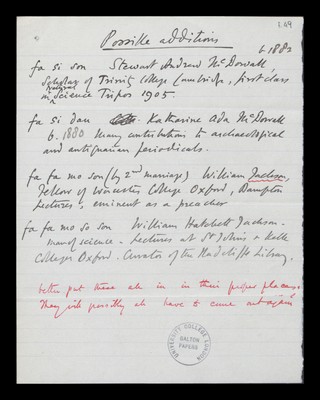 1.49
Possible additions
b 1882
fa si son Stewart Andrew McDowall,
Scholar of Trinity College Cambridge, first class
in Natural Science Tripos 1905.
fa si dau Katharine Ada McDowall
b. 1880 Many contributions to archaeological
and antiquarian periodicals.
fa fa mo son (by 2nd marriage) William Jackson,
Fellow of Worcester College Oxford, Bampton
Lectures, eminent as a preacher
fa fa mo so son William Hatchett Jackson -
man of science - Lectures at St Johns & Keble
Colleges Oxford. Curator of the Radcliffe Library.
better put these all in in their proper places.
They will possibly all have to come out again
UNIVERSITY COLLEGE LONDON
GALTON
PAPERS